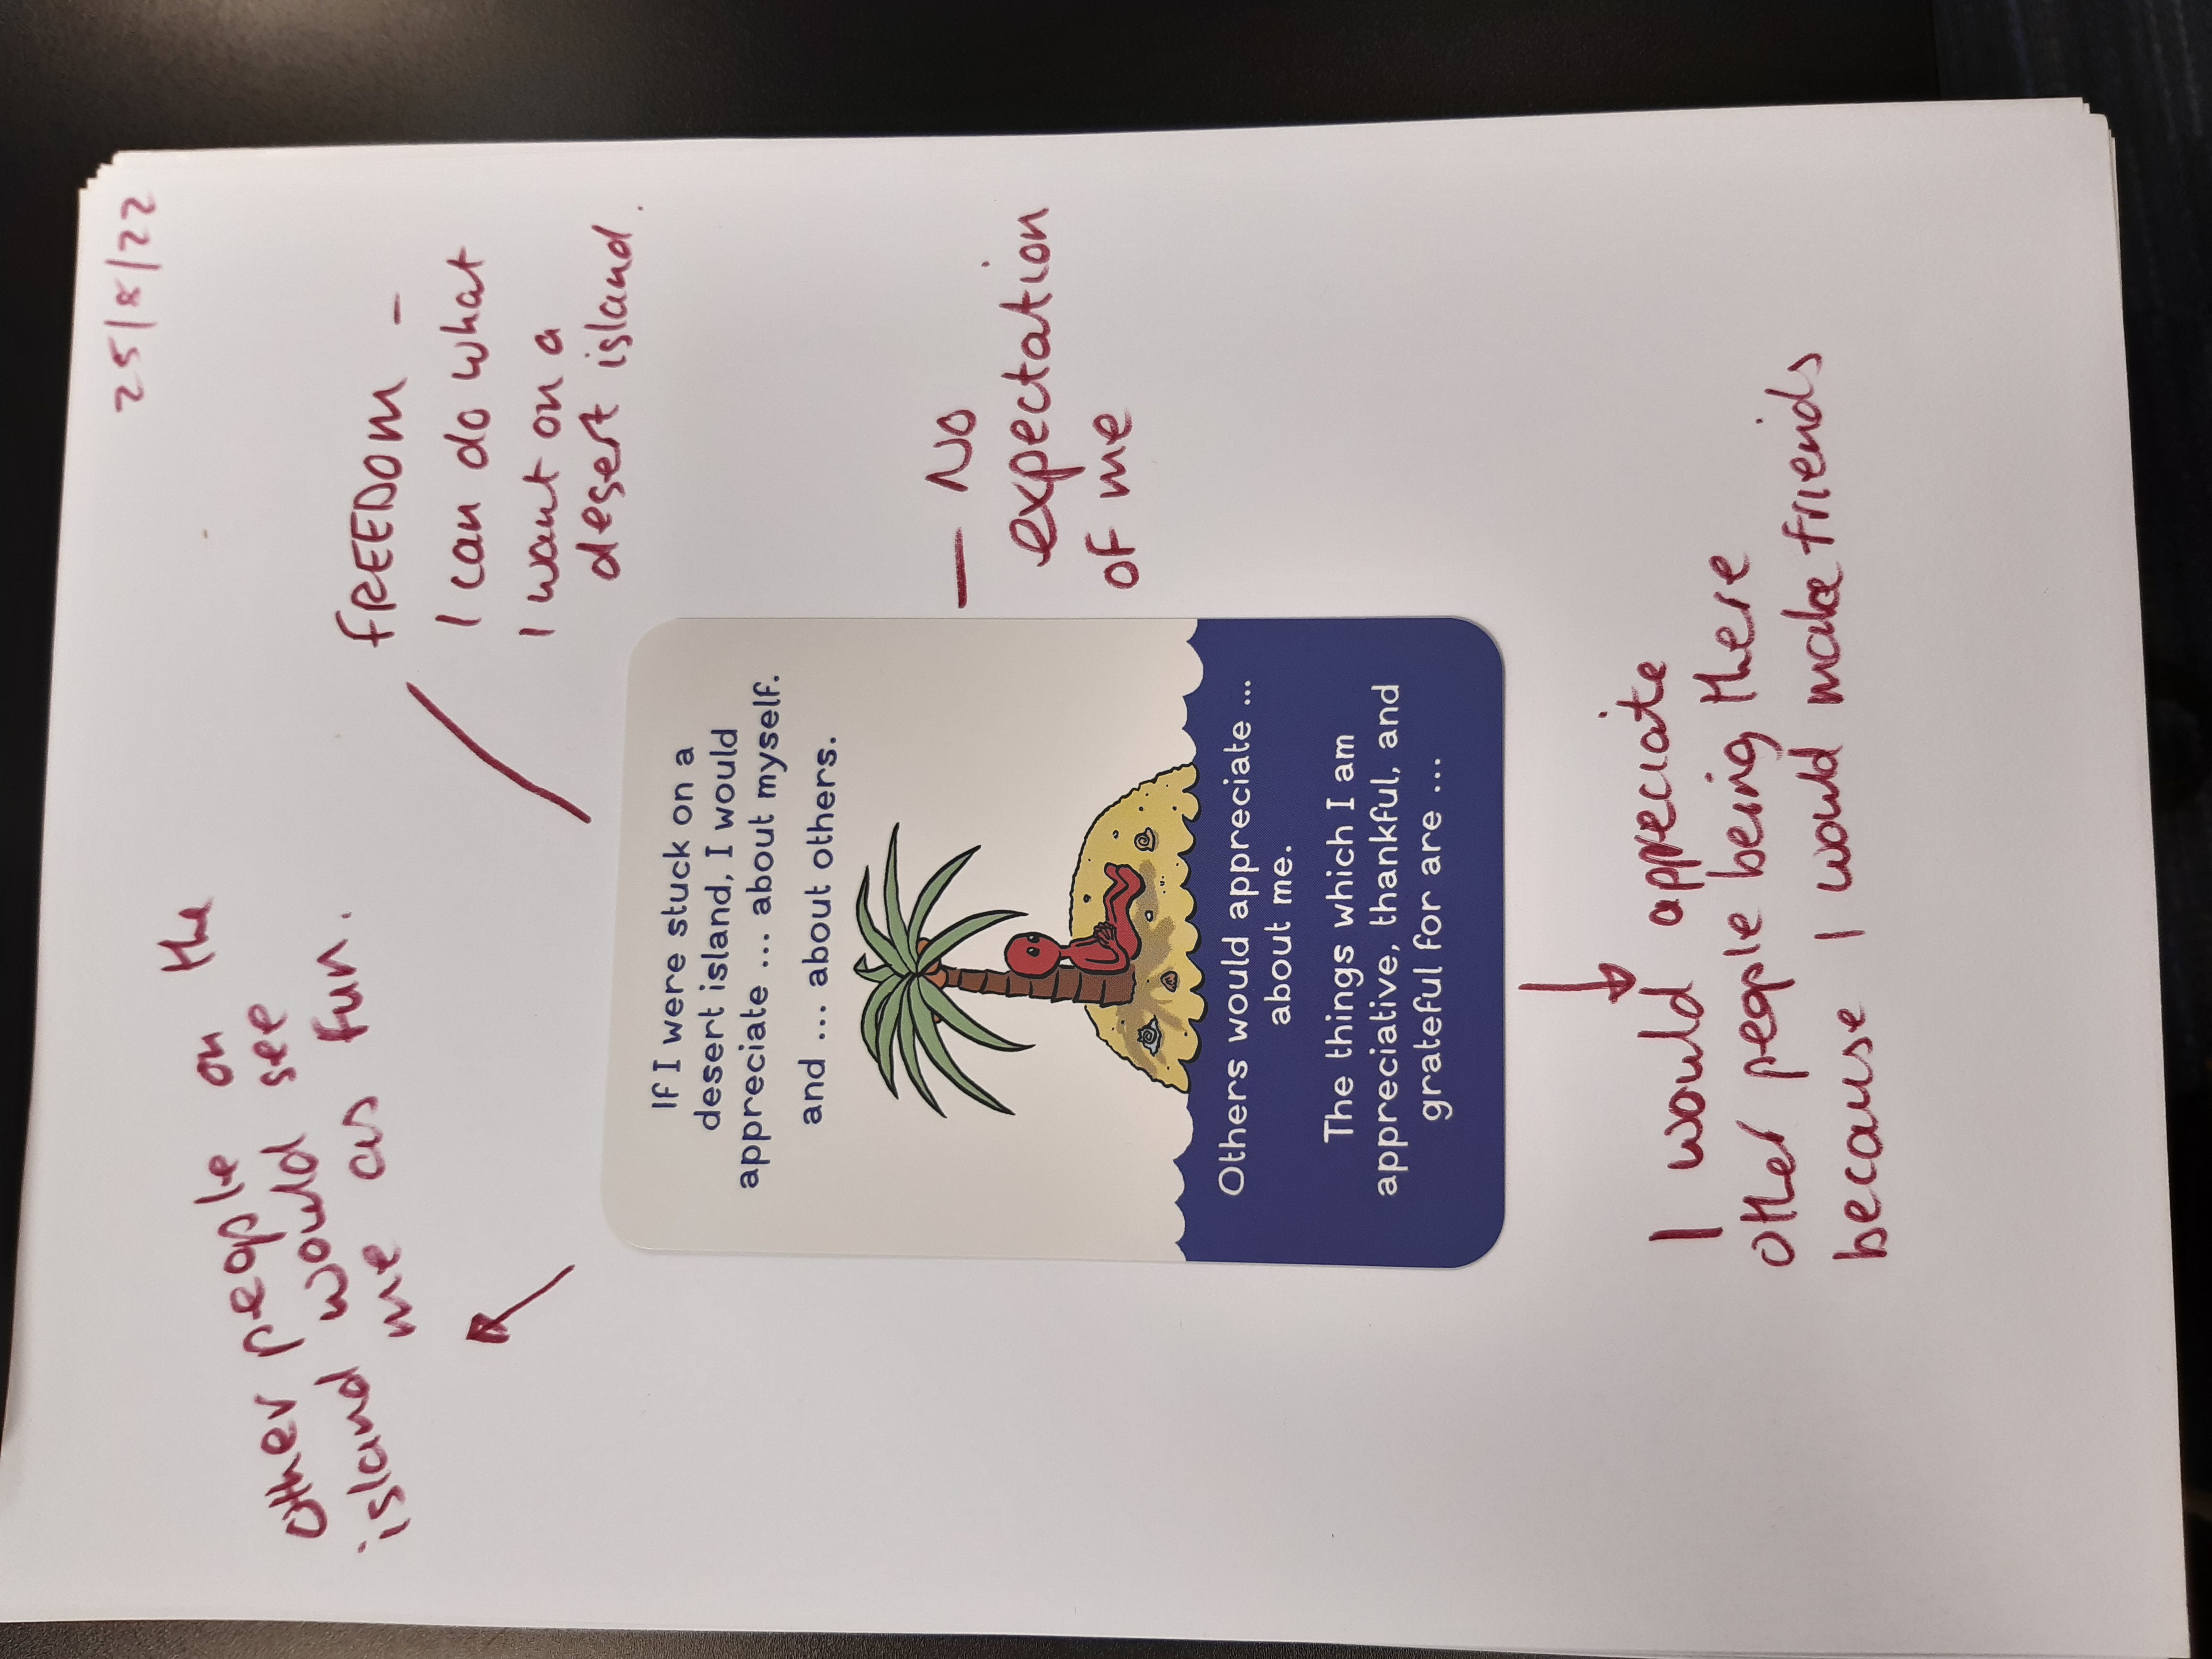 25/8/22
Other people on the
island would see
me as fun.
FREEDOM -
I can do what
I want on a
desert island.
If I were stuck on a
desert island, I would
appreciate ... about myself.
and ... about others.
Others would appreciate ...
about me.
The things which I am
appreciative, thankful, and
grateful for are ...
- No
expectation
of me
I would appreciate
other people being there
because I would make friends